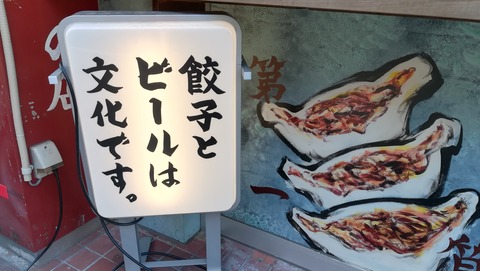 餃子と
ビールは
文化です。
第
一